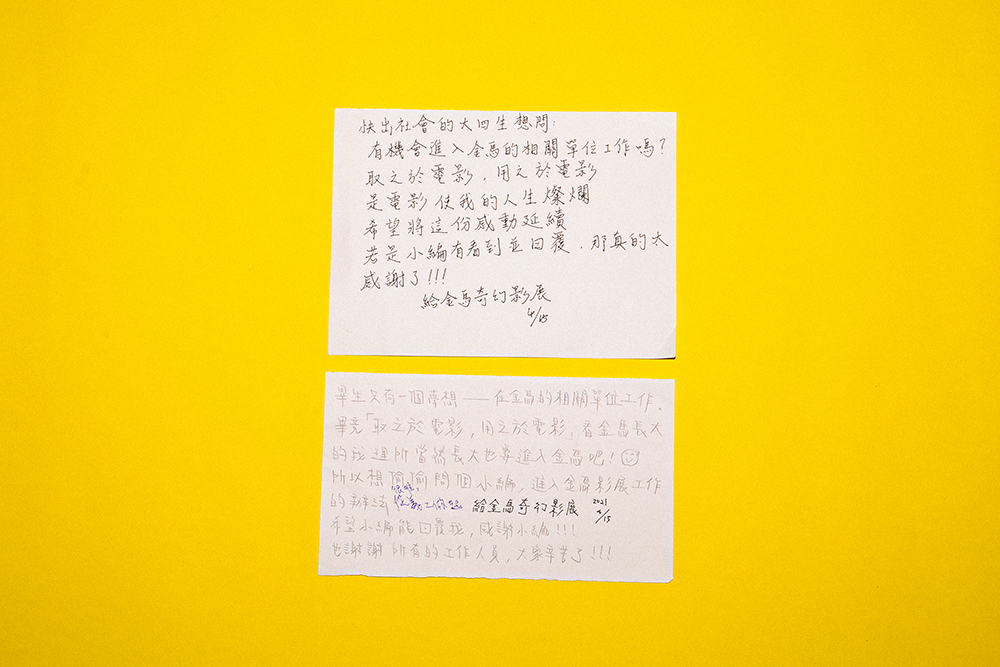 快出社會的大四生想問：
有機會進入金馬的相關單位工作嗎？
取之於電影，用之於電影
是電影使我的人生燦爛
希望將這份感動延續
若是小編有看到並回覆，那真的太
感謝了!!!
給金馬奇幻影展
4/15
畢生只有一個夢想——在金馬的相關單位工作。
畢竟「取之於電影，用之於電影」看金馬長大
的我理所當然長大也要進入金馬吧！
所以想偷偷問個小編，進入金馬影展工作
的辦法
工作起
給金馬奇幻影展
2021
4/15
希望小編能回覆我，感謝小編!!!
也謝謝所有的工作人員，大家辛苦了!!!